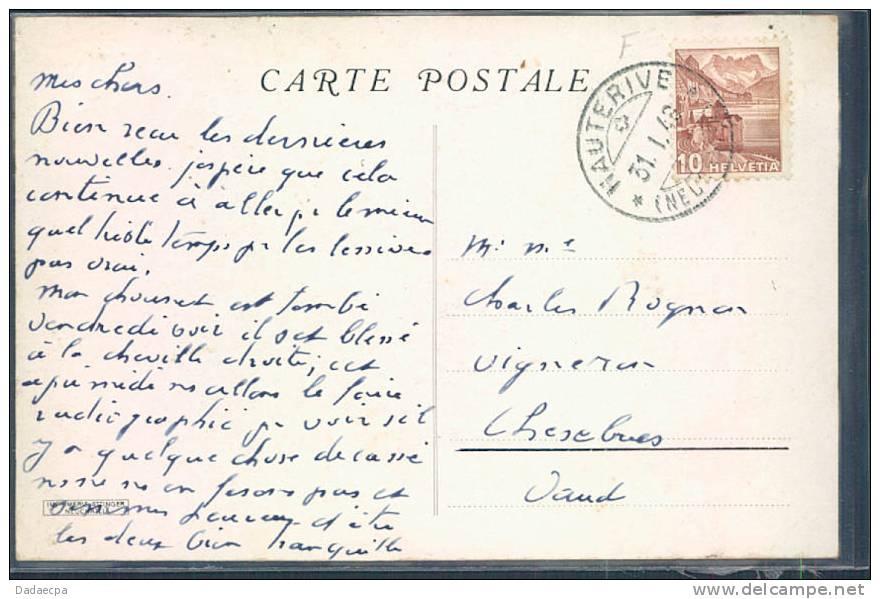 F
CARTE POSTALE
HAUTERIVE
31. I. 48
(NEUCH
10 HELVETIA
mes chers.
Bien reçu les dernières
nouvelles. j'espère que cela
continue à aller pr le mieux
quel temps pr les lessives
pas vrai.
Mon est tombé
vendredi soir il s'est blessé
à la cheville droite, cet
après midi ns allons le faire
radiographié pr voir s'il
y a quelque chose de cassé
ns ne ns en faisons pas et
d'être
les deux bien tranquille
Mr Mme
Charles Rognon
vigneron
Chesebres
Vaud
IMPRIMERIE ATTINGER
NEUCHATEL
Dadaecpa
www.delcampe.net